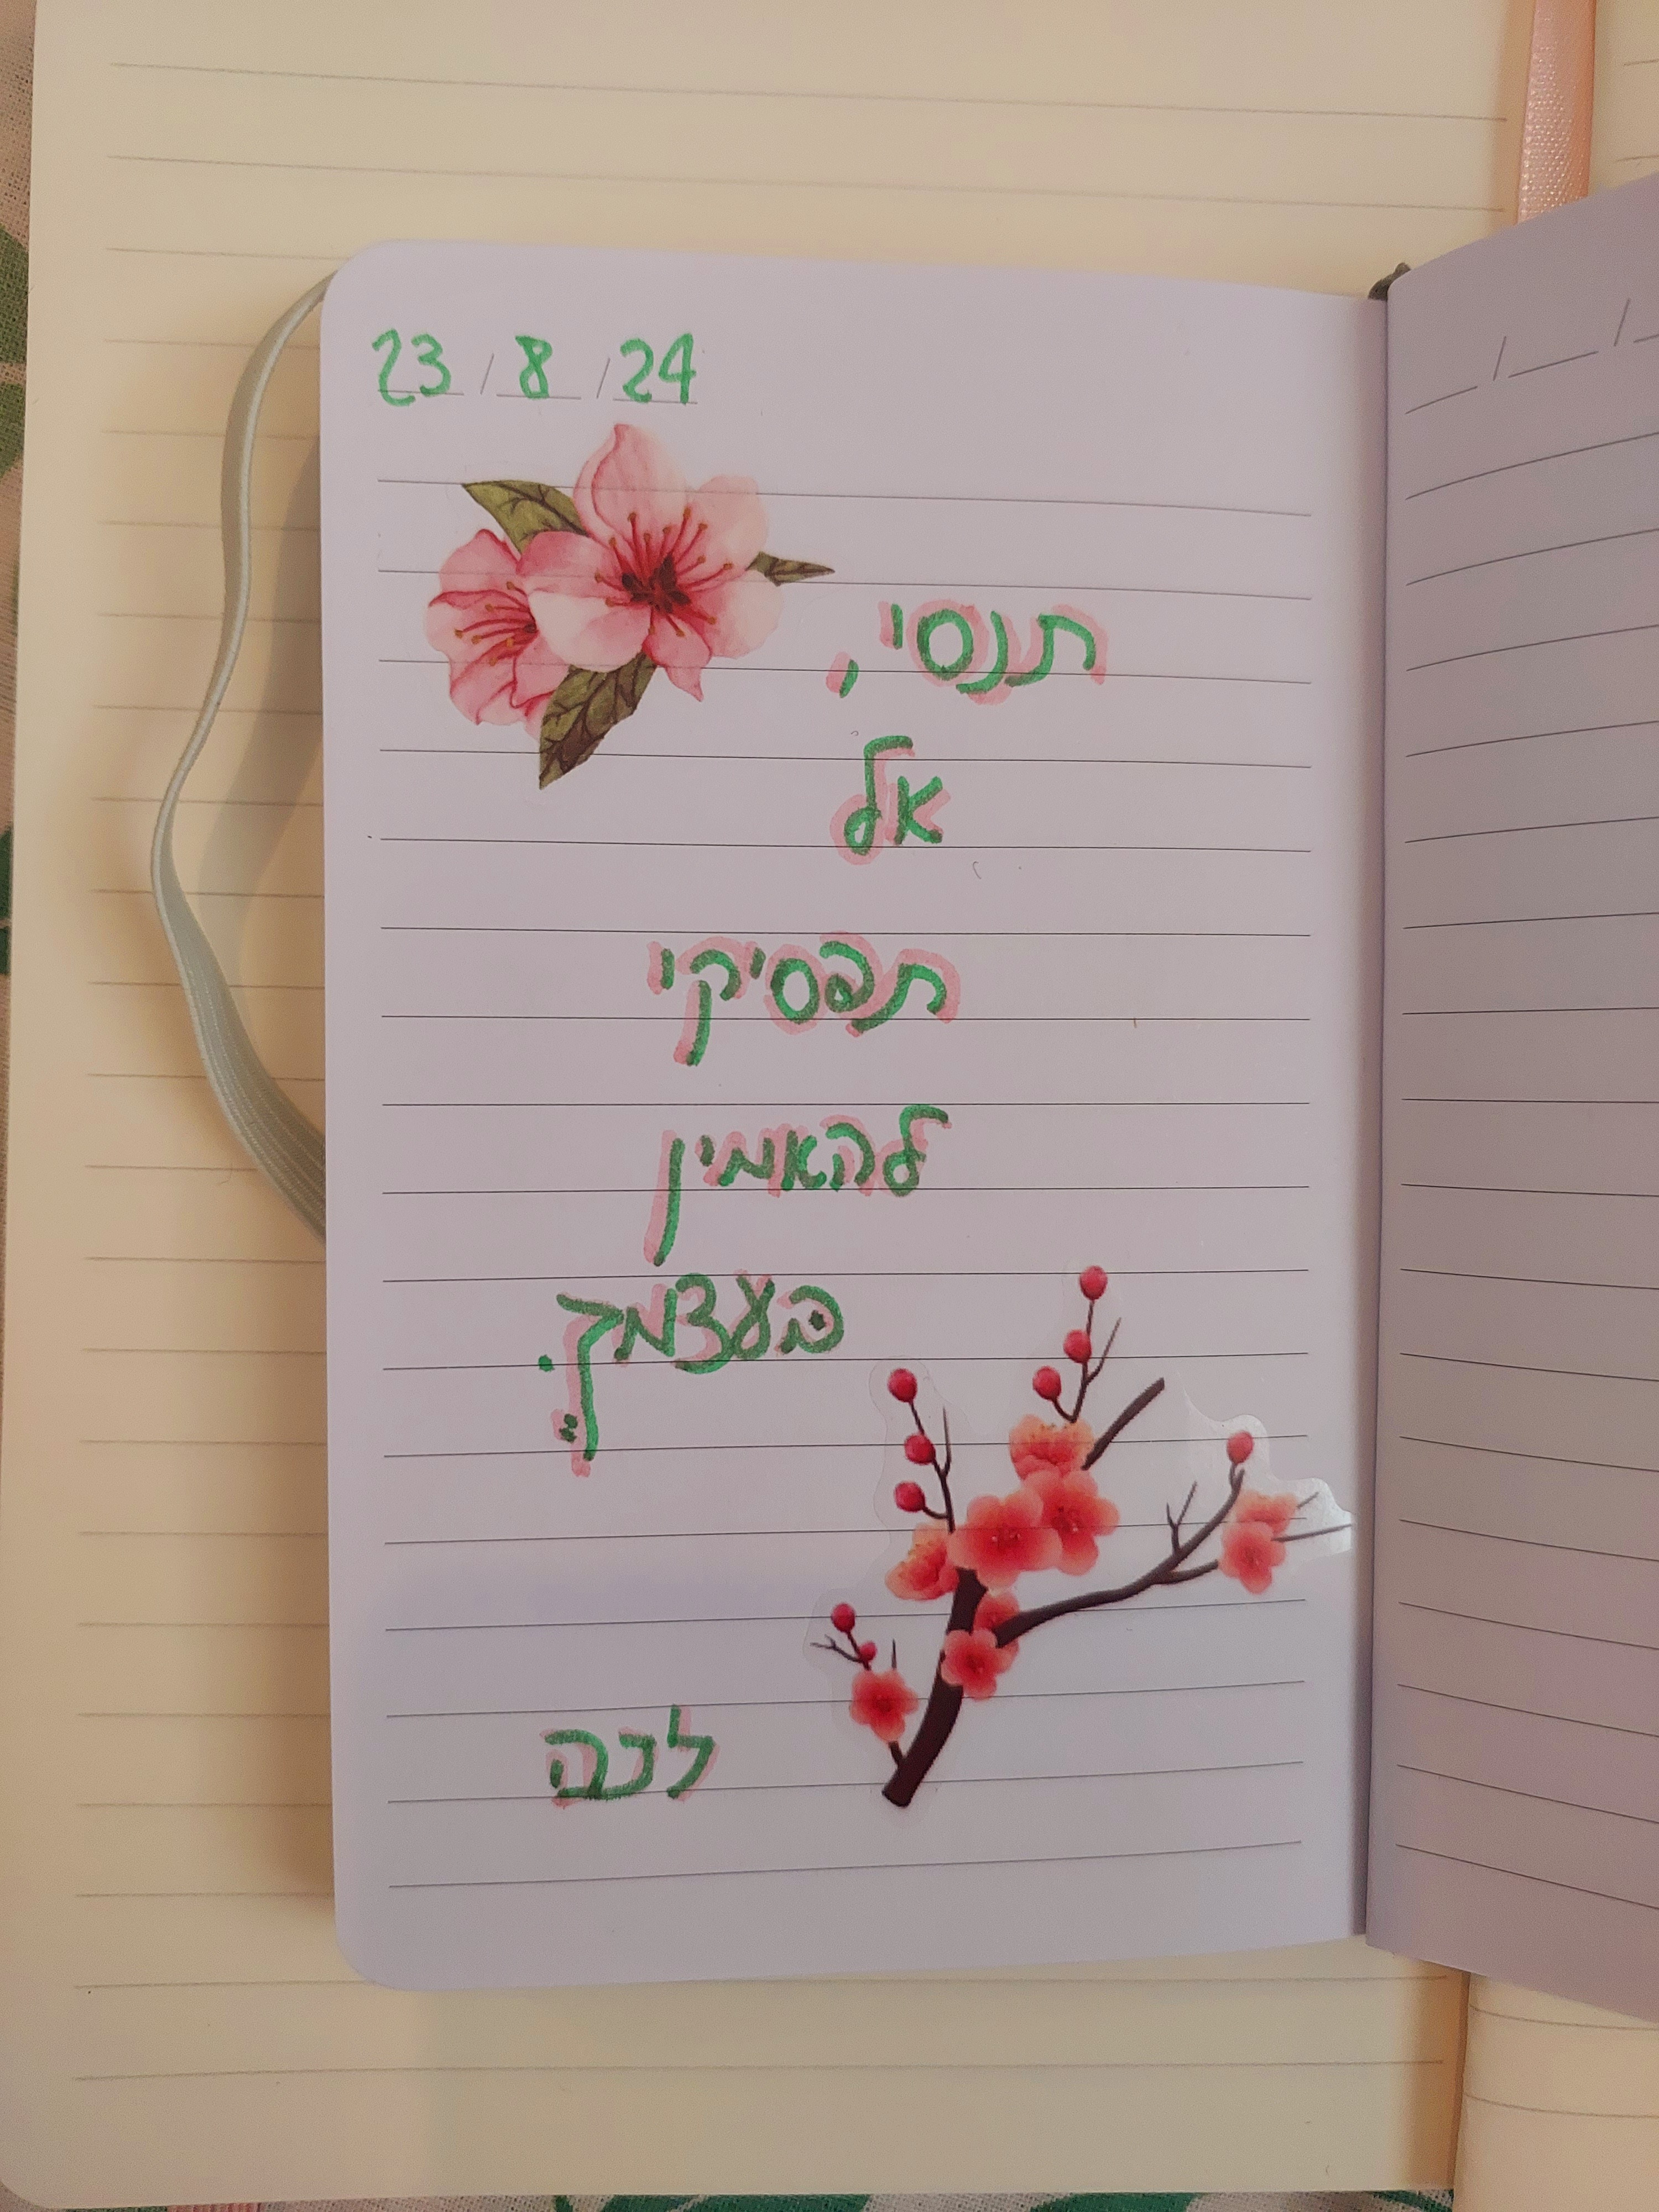 23/8/24
תנסי,
אל
תפסיקי
להאמין
בעצמך.
לכה